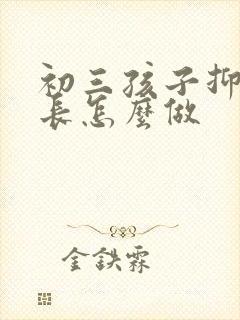 初三孩子抑
長怎麼做
金鉄霖